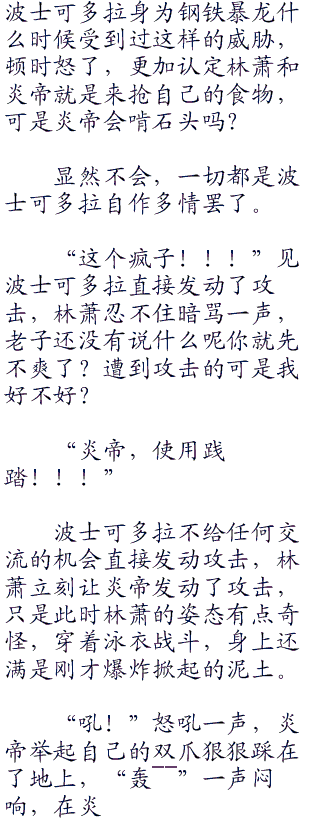 波士可多拉身为钢铁暴龙什
么时候受到过这样的威胁，
顿时怒了，更加认定林萧和
炎帝就是来抢自己的食物，
可是炎帝会啃石头吗？
显然不会，一切都是波
士可多拉自作多情罢了。
“这个疯子！！！”见
波士可多拉直接发动了攻
击，林萧忍不住暗骂一声，
老子还没有说什么呢你就先
不爽了？遭到攻击的可是我
好不好？
“炎帝，使用践
踏！！！”
波士可多拉不给任何交
流的机会直接发动攻击，林
萧立刻让炎帝发动了攻击，
只是此时林萧的姿态有点奇
怪，穿着泳衣战斗，身上还
满是刚才爆炸掀起的泥土。
“吼！”怒吼一声，炎
帝举起自己的双爪狠狠踩在
了地上，“轰——”一声闷
响，在炎